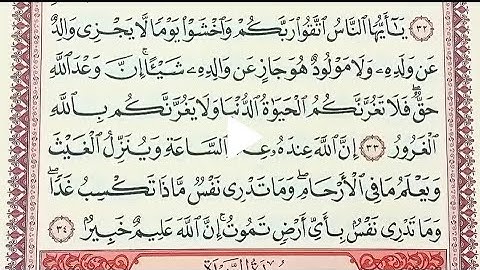 ٣٢ يَٰٓأَيُّهَا ٱلنَّاسُ ٱتَّقُوا۟ رَبَّكُمْ وَٱخْشَوْا۟ يَوْمًا لَّا يَجْزِى وَالِدٌ
عَن وَلَدِهِۦ وَلَا مَوْلُودٌ هُوَ جَازٍ عَن وَالِدِهِۦ شَيْـًٔا ۚ إِنَّ وَعْدَ ٱللَّهِ
حَقٌّ ۖ فَلَا تَغُرَّنَّكُمُ ٱلْحَيَوٰةُ ٱلدُّنْيَا وَلَا يَغُرَّنَّكُم بِٱللَّهِ
ٱلْغَرُورُ ٣٣ إِنَّ ٱللَّهَ عِندَهُۥ ٱلسَّاعَةِ وَيُنَزِّلُ ٱلْغَيْثَ
وَيَعْلَمُ مَا فِى ٱلْأَرْحَامِ ۖ وَمَا تَدْرِى نَفْسٌ مَّاذَا تَكْسِبُ غَدًا ۖ
وَمَا تَدْرِى نَفْسٌۢ بِأَىِّ أَرْضٍ تَمُوتُ ۚ إِنَّ ٱللَّهَ عَلِيمٌ خَبِيرٌۢ ٣٤